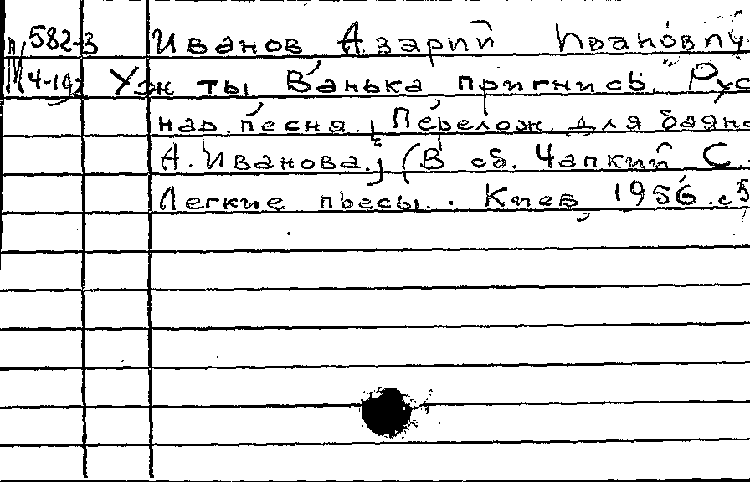 582-3 Иванов Азарий Иванович
4-192 Уж ты Ванька пригнись. Рус
нар. песня. [Перелож. для баяна
А. Иванова.] (В сб. Чапкий С.
Легкие пьесы. Киев 1956 с5